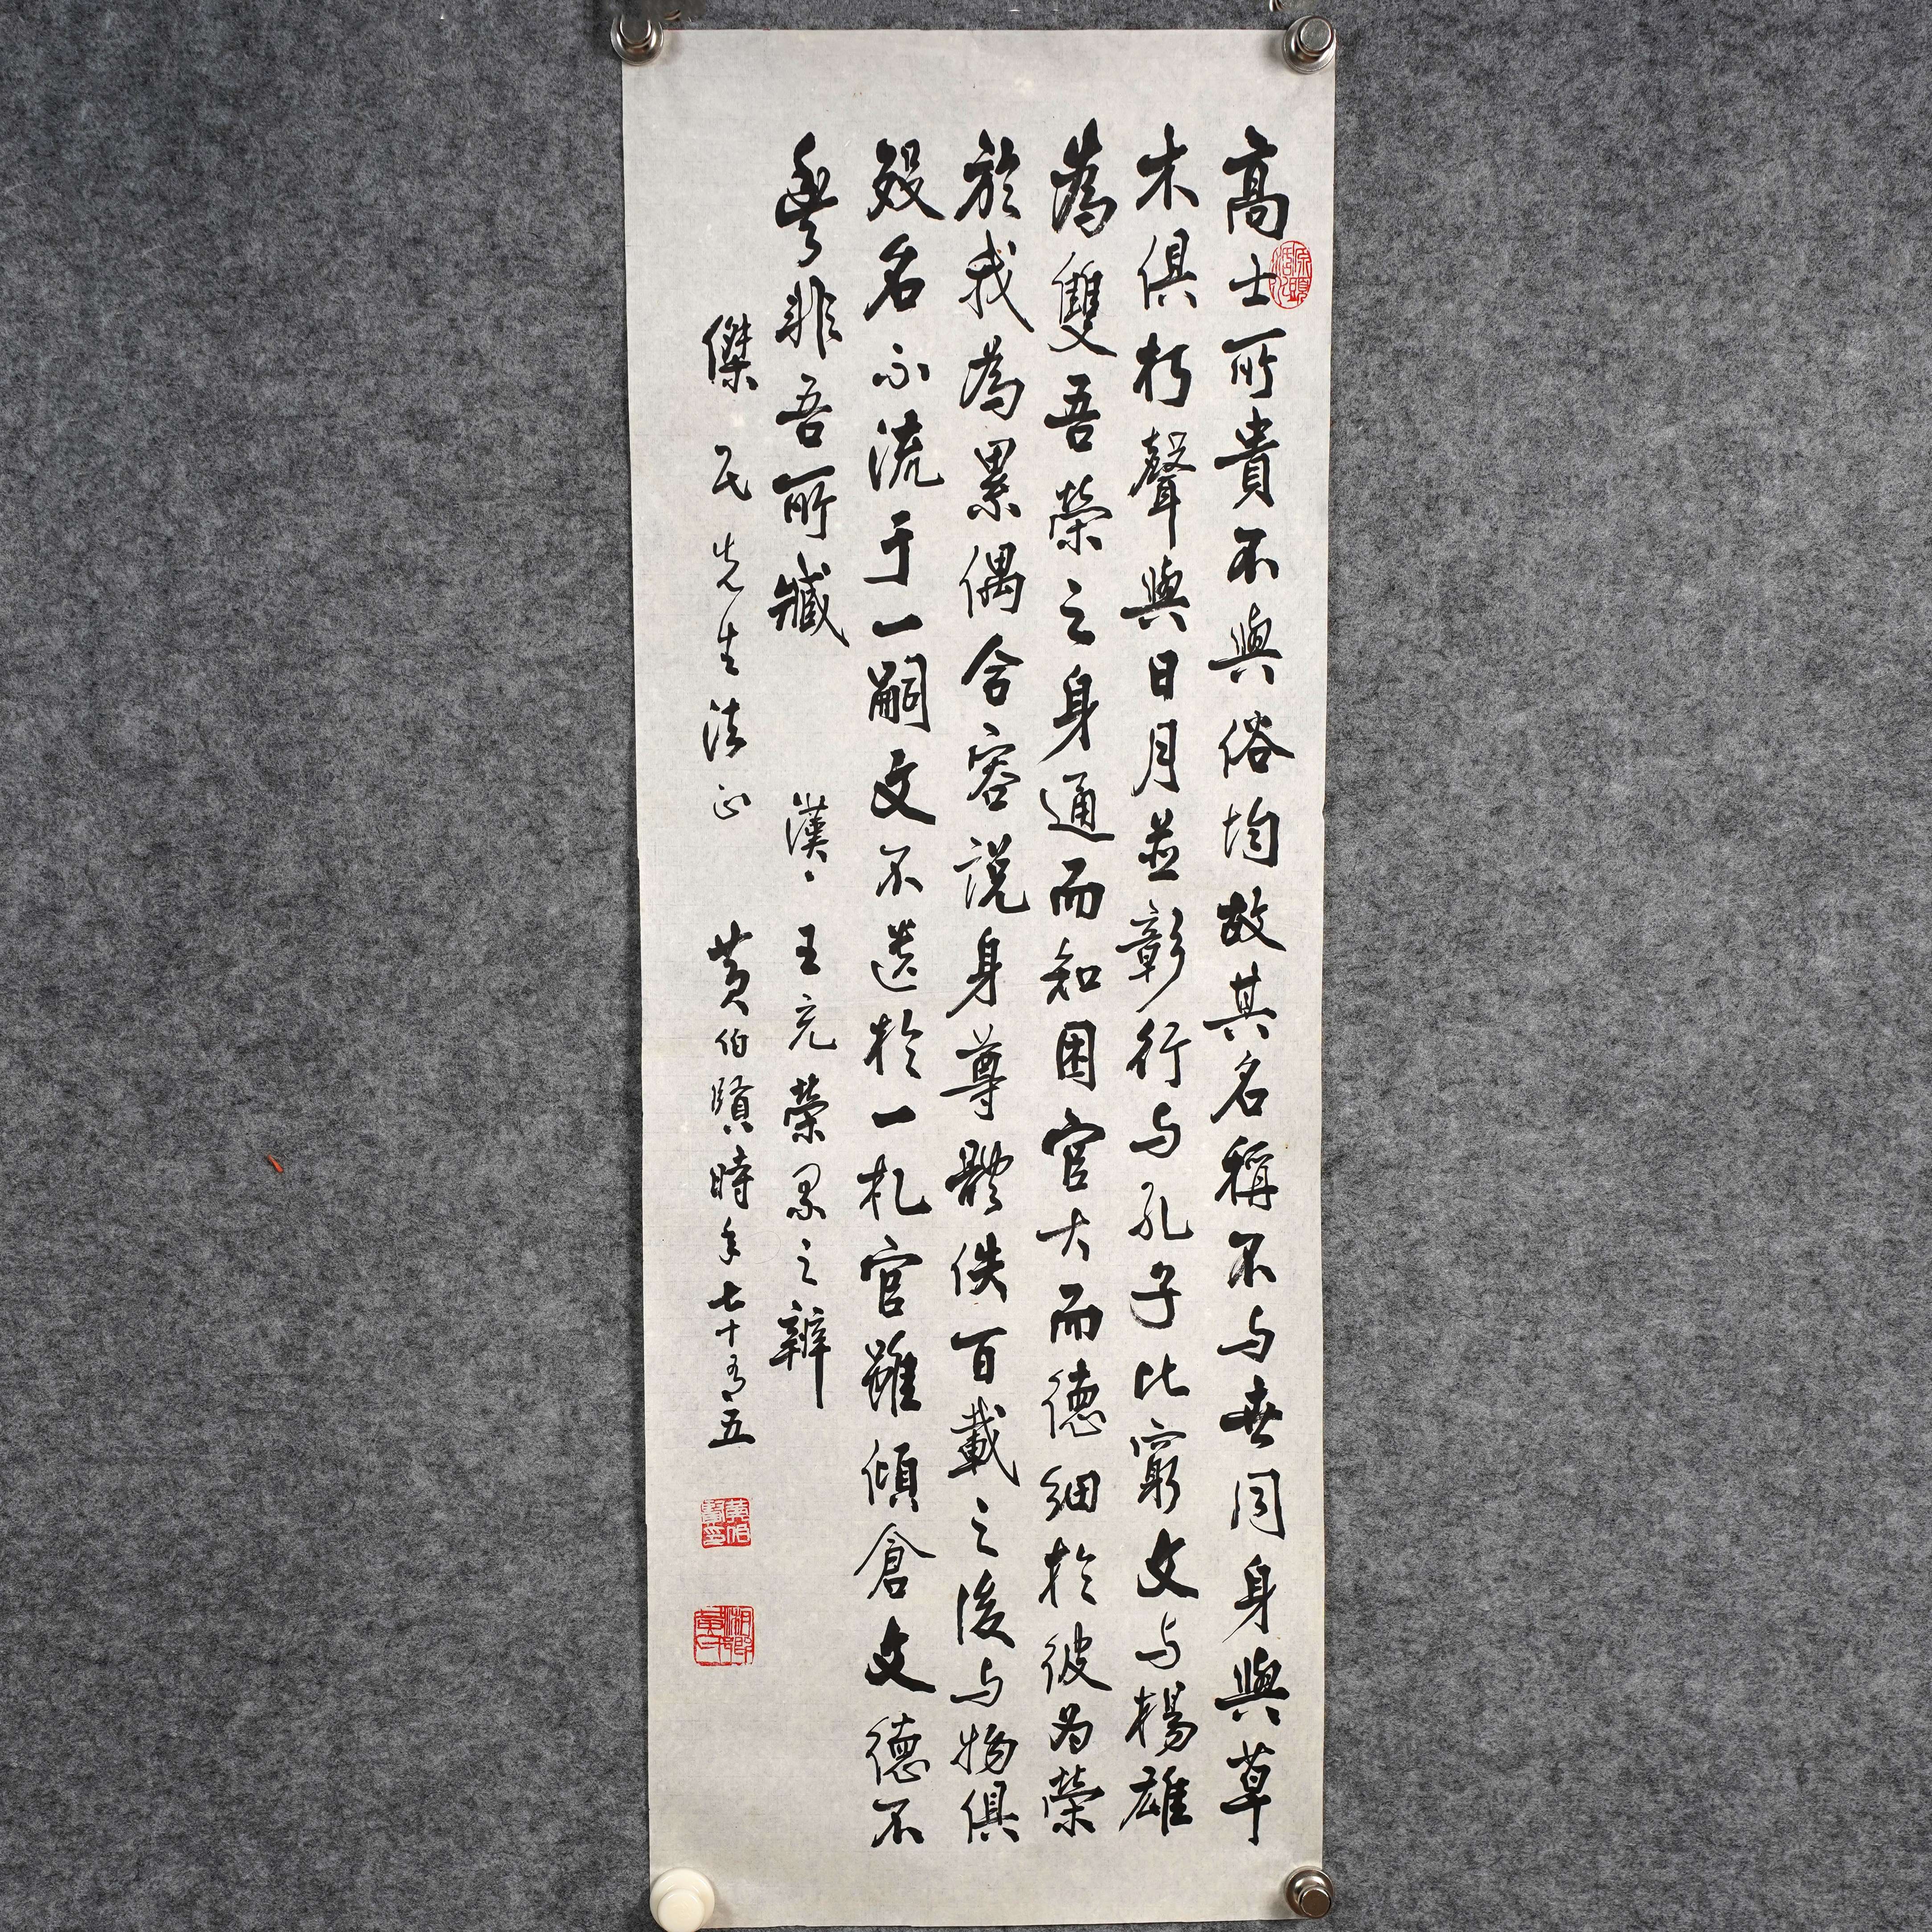 高士所貴不與俗均故其名稱不与世同身與草
木俱朽聲與日月並彰行与孔子比窮文与楊雄
為雙吾榮之身通而知困官大而德細於彼为榮
於我為累偶合容説身尊體佚百載之後与物俱
歿名不流于一嗣文不遺於一札官雖傾倉文德不
豐非吾所臧 漢、王充榮累之辨
傑民先生法正 黄伯賢時年七十有五
黄伯賢印